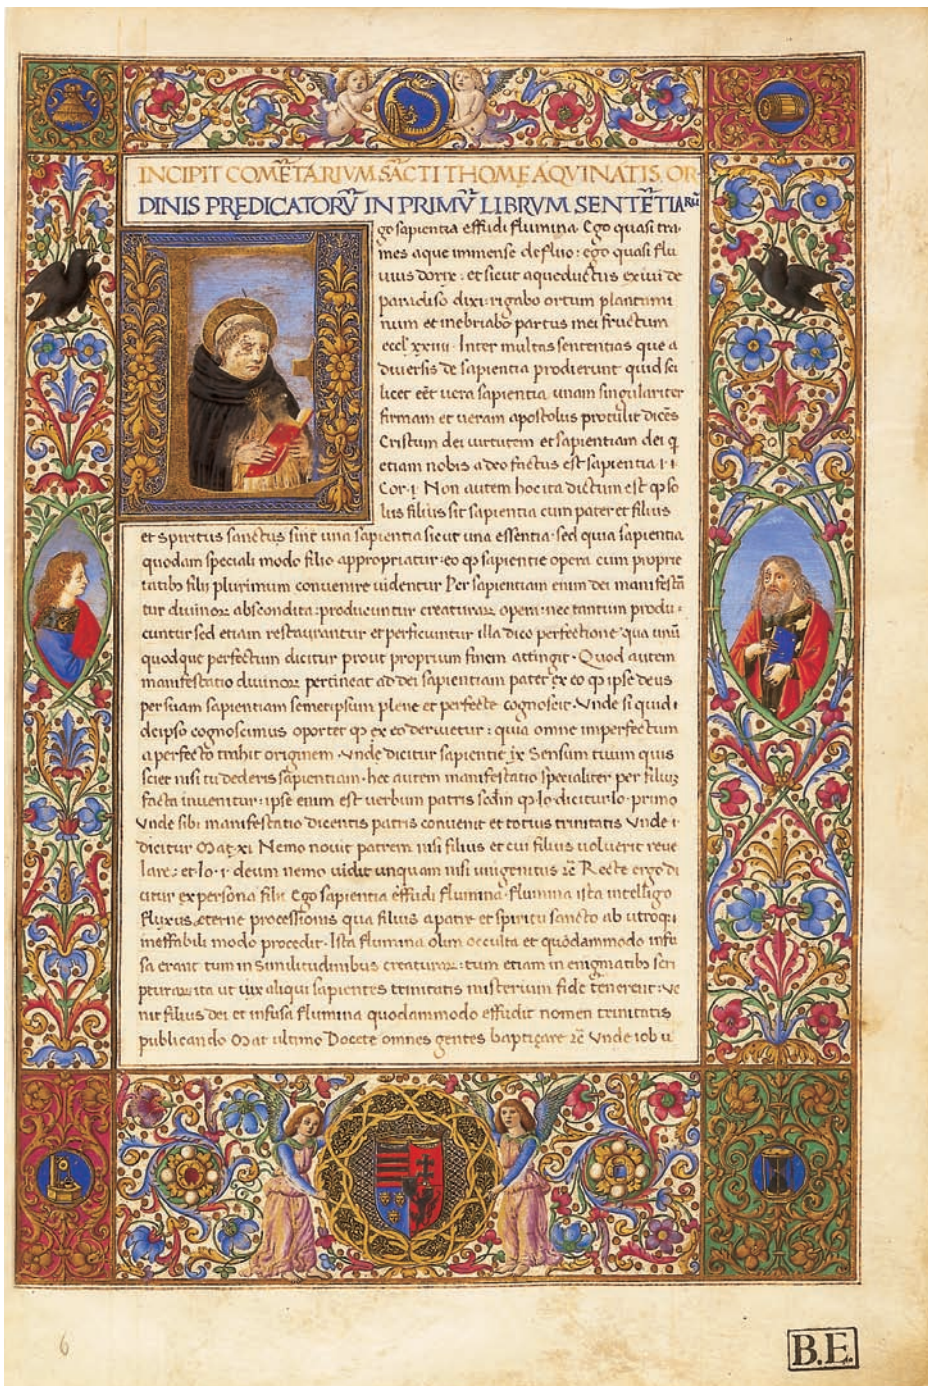 INCIPIT COMẼTARIVM SÃCTI THOMĘ AQVINATIS, OR-
DINIS PRĘDICATORṼ IN PRIMṼ LIBRVM SENTẼTIARũ
Ego sapientia effudi flumina. Ego quasi tra
mes aque immense defluo: ego quasi flu
uius dorix: et sicut aqueductus exiui de
paradiso dixi: rigabo ortum plantumi
num et inebriabo partus mei fructum
eccl. xxiiii. Inter multas sententias que a
diuersis de sapientia prodierunt quid sci
licet eẽt uera sapientia unam singulariter
firmam et ueram apostolus protulit dicẽs
Cristum dei uirtutem et sapientiam dei q
etiam nobis a deo factus est sapientia. i. i
Cor. i. Non autem hoc ita dictum est qp so
lus filius sit sapientia cum pater et filius
et Spiritus sanctus sint una sapientia sicut una essentia. sed quia sapientia
quodam speciali modo filio appropriatur. eo qp sapientie opera cum proprie
tatibꝫ filij plurimum conuenire uidentur Per sapientiam enim dei manifestã
tur diuinoꝝ abscondita: producuntur creaturaꝝ opera: nec tantum produ-
cuntur sed etiam restaurantur et perficiuntur illa dico perfectione qua unũ
quodque perfectum dicitur prout proprium finem attingit. Quod autem
manifestatio diuinoꝝ pertineat ad dei sapientiam patet ex eo qp ipse deus
per suam sapientiam semetipsum plene et perfecte cognoscit. Vnde si quid
de ipso cognoscimus oportet qp ex eo deriuetur: quia omne imperfectum
a perfecto trahit originem. Vnde dicitur sapientie ix Sensum tuum quis
sciet nisi tu dederis sapientiam. hec autem manifestatio specialiter per filiuꝫ
facta inuenitur: ipse enim est uerbum patris scdm qp Io. dicitur Io. primo
Vnde sibi manifestatio dicentis patris conuenit et totius trinitatis Vnde
dicitur Mat. xi Nemo nouit patrem nisi filius et cui filius uoluerit reue
lare: et Io. i. deum nemo uidit unquam nisi unigenitus ꝛc̃ Recte ergo di
citur ex persona filij Ego sapientia effudi flumina. flumina ista intelligo
fluxus eterne processionis qua filius a patre et spiritu sancto ab utroqꝫ
ineffabili modo procedit. Ista flumina olim occulta et quodammodo infu
sa erant tum in Similitudinibus creaturaꝝ: tum etiam in enigmatibꝫ scri
pturaꝝ ita ut uix aliqui sapientes trinitatis misterium fide tenerent: Ve
nit filius dei et infusa flumina quodammodo effudit nomen trinitatis
publicando Mat ultimo Docete omnes gentes baptiçare ꝛc̃ Vnde iob
6
B.E.